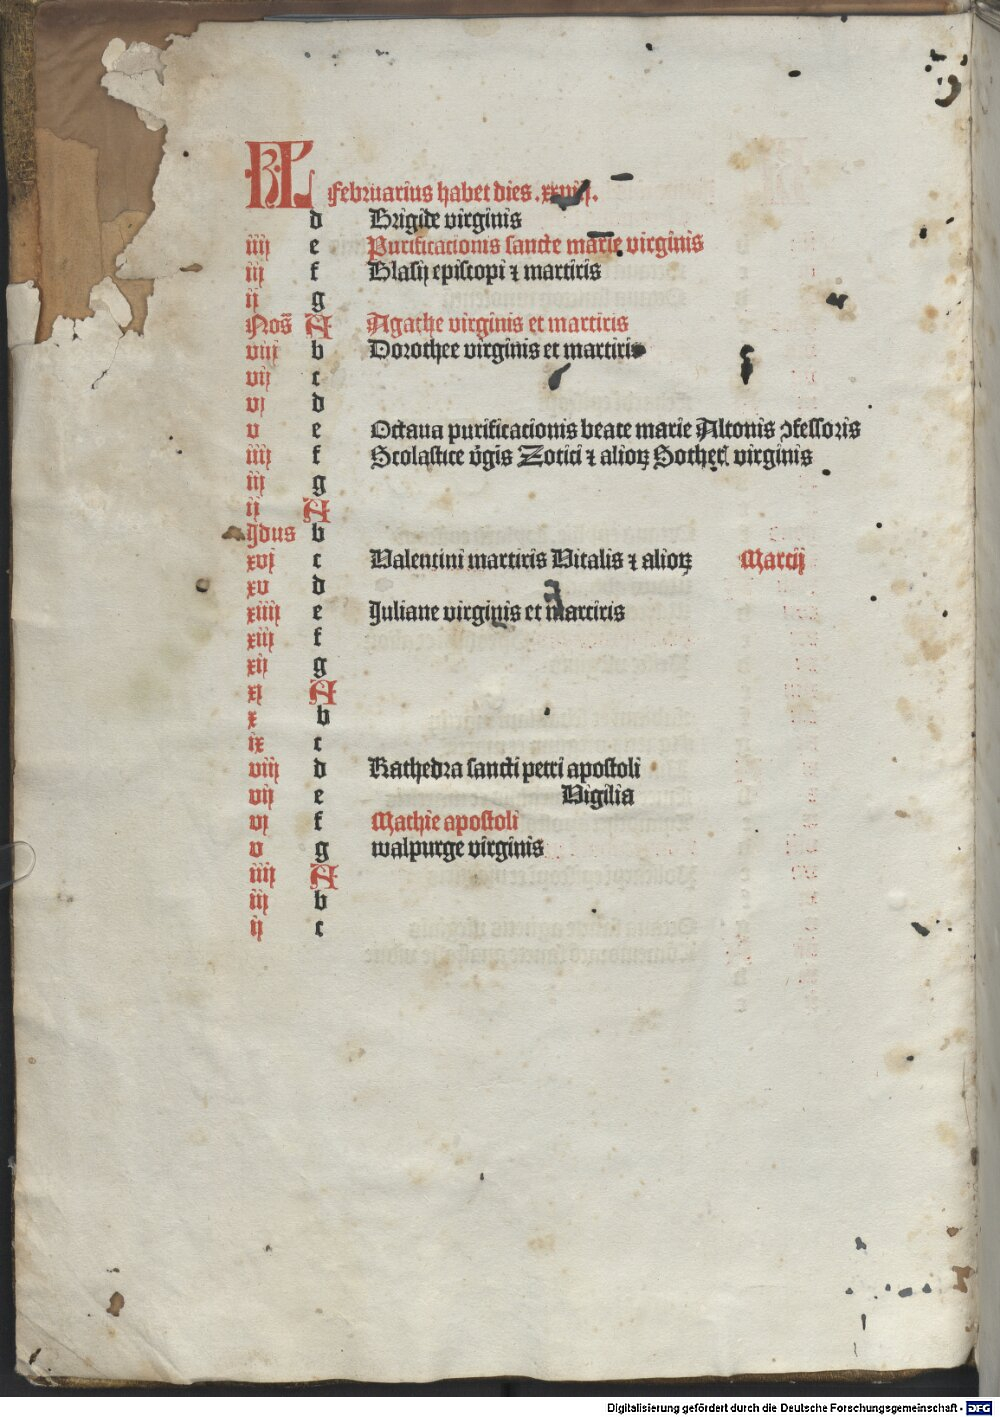 KL Februarius habet dies .xxviij.
d Brigide virginis
iiij e Purificationis sancte marie virginis
iij f Blasij episcopi ⁊ martiris
ij g
Nos̄ A Agathe virginis et martiris
viij b Dorothee virginis et martiris
vij c
vj d
v e Octaua purificationis beate marie Altonis ↄfessoris
iiij f Scolastice v̄gis̄ Zotici ⁊ alioꝝ Sother̄ virginis
iij g
ij A
Idus b
xvj c Valentini martiris Vitalis ⁊ alioꝝ Martij
xv d
xiiij e Juliane virginis et martiris
xiij f
xij g
xj A
x b
ix c
viij d Kathedra sancti petri apostoli
vij e Vigilia
vj f Mathie apostoli
v g walpurge virginis
iiij A
iij b
ij c
Digitalisierung gefördert durch die Deutsche Forschungsgemeinschaft - DFG